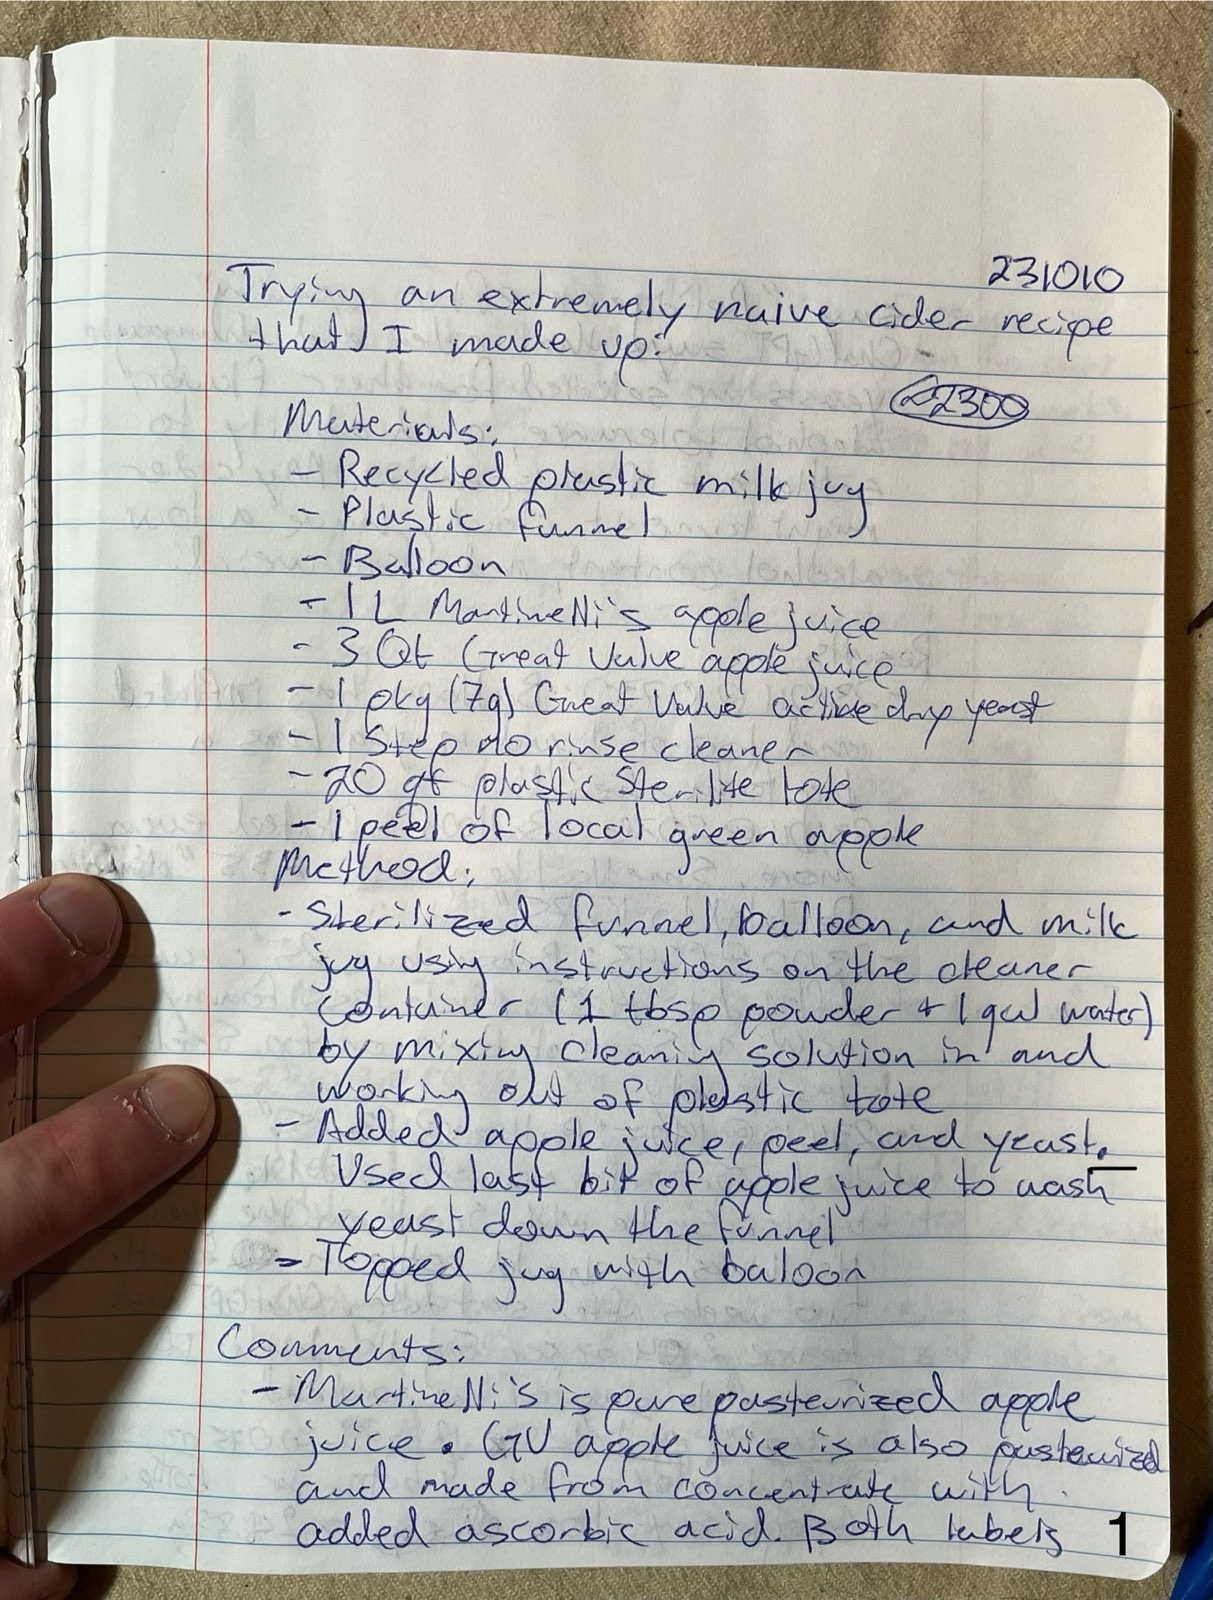 231010
Trying an extremely naive cider recipe
that I made up:
~2300
Materials:
- Recycled plastic milk jug
- Plastic funnel
- Balloon
- 1 L Martinelli's apple juice
- 3 Qt Great Value apple juice
- 1 pkg (7g) Great Value active dry yeast
- 1 Step no rinse cleaner
- 20 qt plastic Sterilite tote
- 1 peel of local green apple
Method:
- Sterilized funnel, balloon, and milk
jug using instructions on the cleaner
container (1 tbsp powder + 1 gal water)
by mixing cleaning solution in and
working out of plastic tote
- Added apple juice, peel, and yeast.
Used last bit of apple juice to wash
yeast down the funnel
- Topped jug with baloon
Comments:
- Martinelli's is pure pasteurized apple
juice. GV apple juice is also pasteurized
and made from concentrate with
added ascorbic acid. Both labels
1